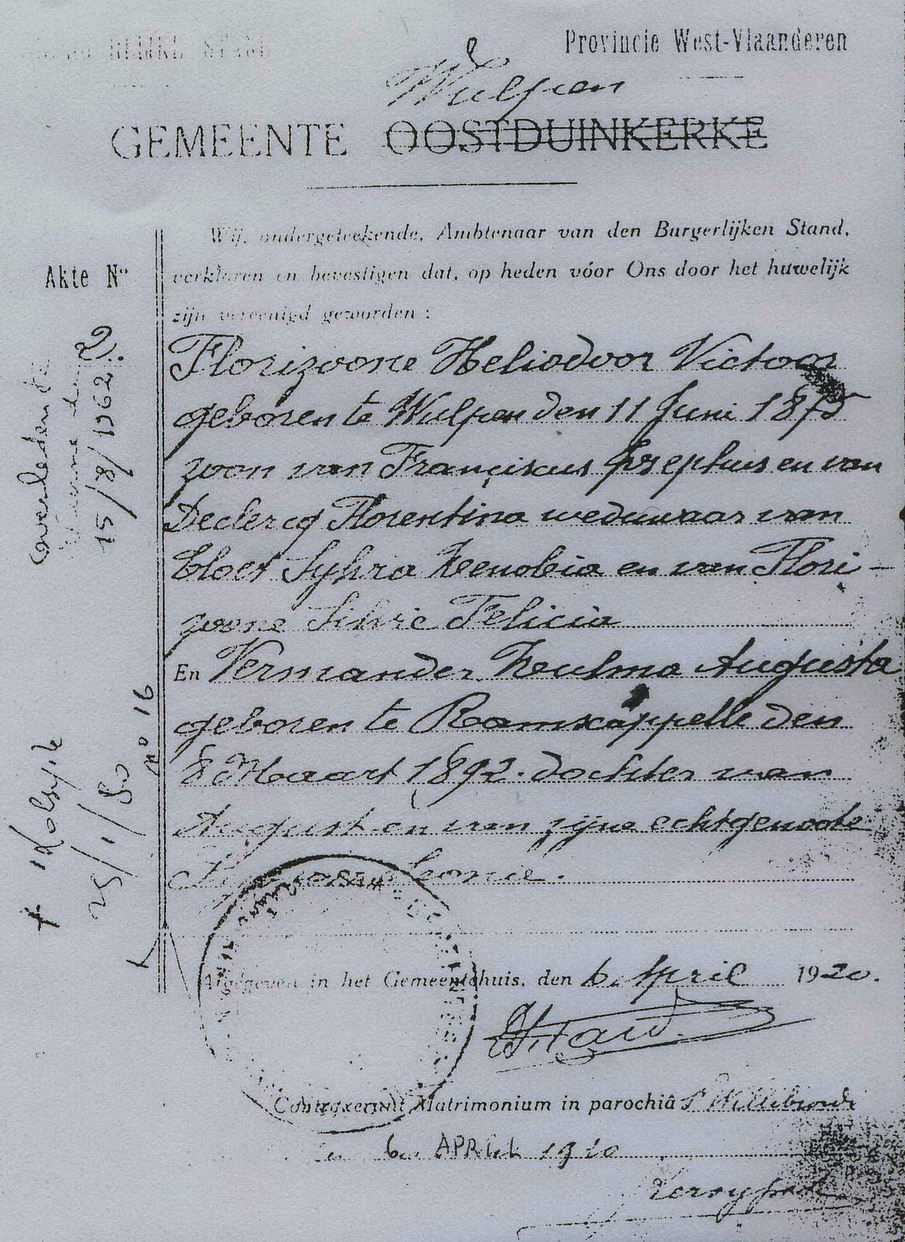 BURGERLIJKE STAND
Provincie West-Vlaanderen
Wulpen
GEMEENTE OOSTDUINKERKE
Wij, ondergeteekende, Ambtenaar van den Burgerlijken Stand,
Akte N° 2
verklaren en bevestigen dat, op heden vóór Ons door het huwelijk
zijn vereenigd geworden :
Florizoone Heliodoor Victoor
geboren te Wulpen den 11 Juni 1875
zoon van Franciscus Josephus en van
Declercq Florentina weduwaar van
Cloet Sylvia Zenobia en van Flori-
zoone Silvie Felicia
En Vermander Zeulma Augusta
geboren te Ramscappelle den
8 Maart 1892 dochter van
August en van zijne echtgenoote
Leonie.
Afgegeven in het Gemeentehuis, den 6 April 1920.
Contraxerunt Matrimonium in parochiâ St Willebrords
6 APRIL 1920
overleden te
Veurne de
15/8/1962
+ Koksijde
25/1/50
no 16